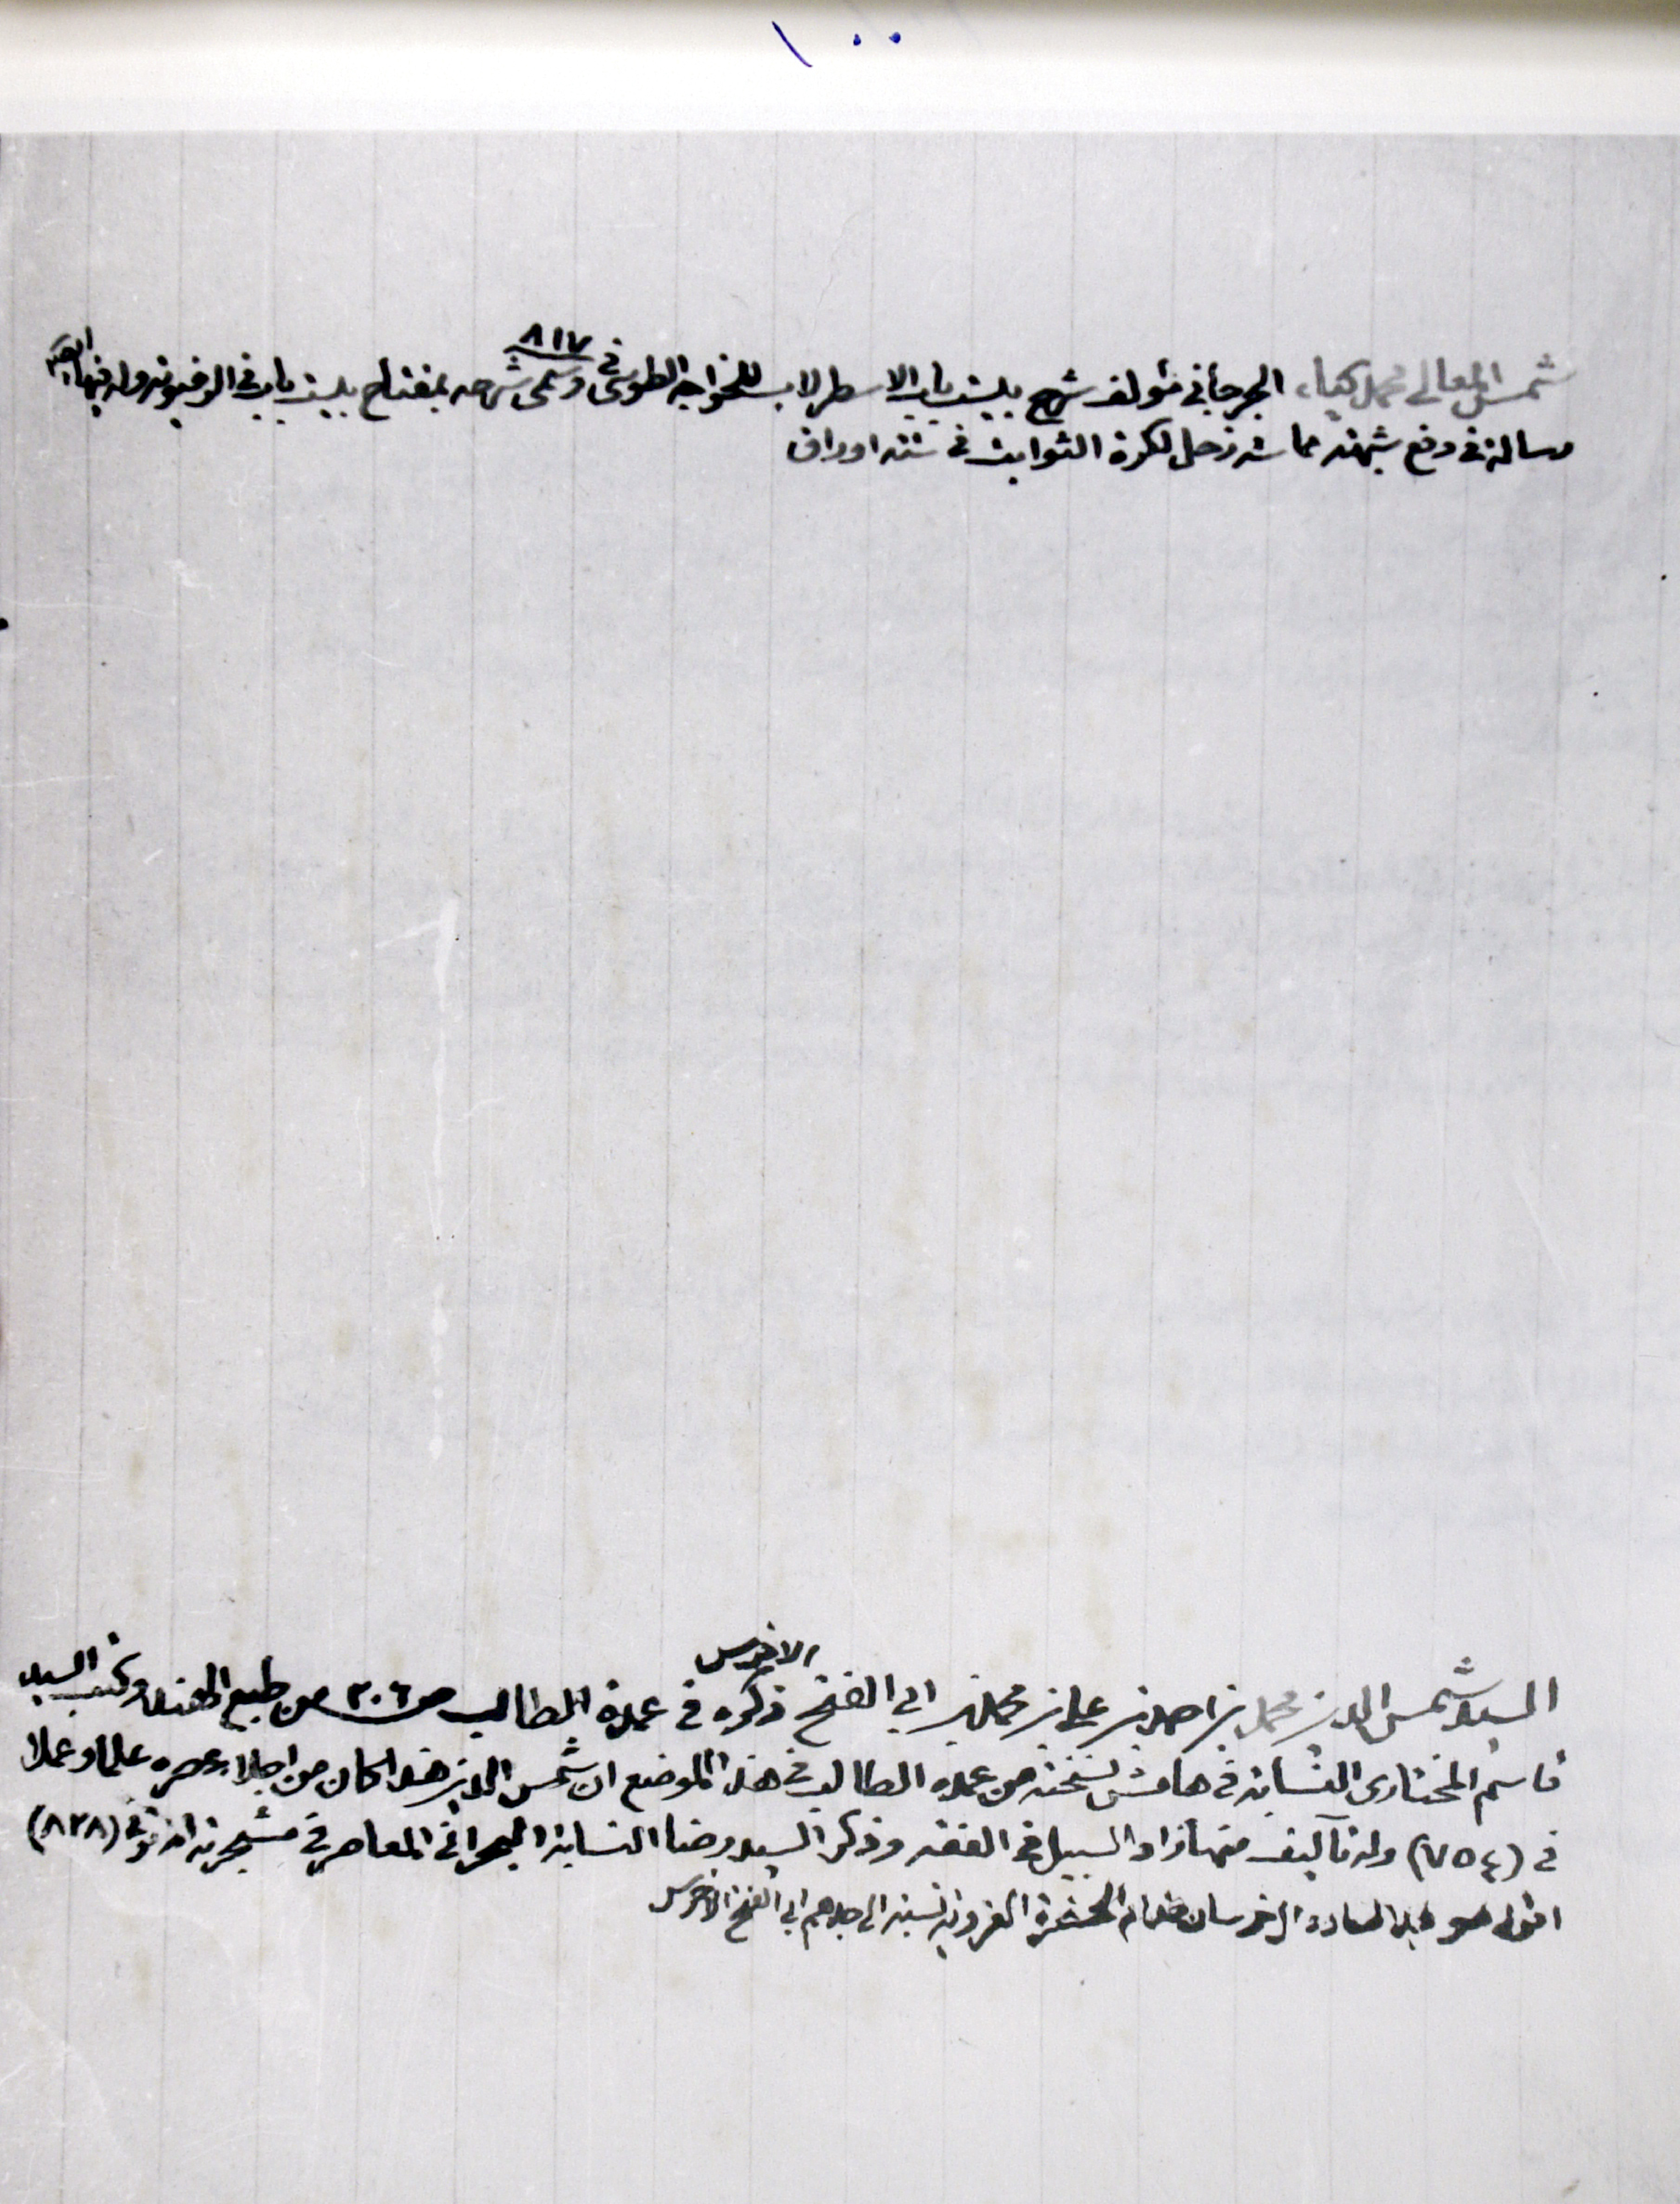 ١٠٠
شمس المعالي محمد كياء الجرجاني مؤلف شرح بيست باب الاسطرلاب للخواجه الطوسي في ٨١٧ وسمى شرحه بمفتاح بيست باب في الرضوية وله فيها ايضا
رسالة في دفع شبهة مماسة زحل لكرة الثوابت في ستة اوراق
السيد شمس الدين محمد بن احمد بن علي بن محمد بن ابي الفتح الاخرس ذكره في عمدة الطالب ص ٣٠٦ من طبع الهند وكتب السيد
قاسم المختاري النسابة في هامش نسخته من عمدة الطالب في هذا الموضع ان شمس الدين هذا كان من اجلاء عصره علما وعملا
في (٧٥٤) وله تآليف منها زاد السبيل في الفقه وذكر السيد رضا النسابة البحراني المعاصر في مشجرته انه توفى (٨٢٨)
اقول هو جد السادة الخرسان خدام الحضرة الغروية نسبة الى جدهم ابي الفتح الاخرس